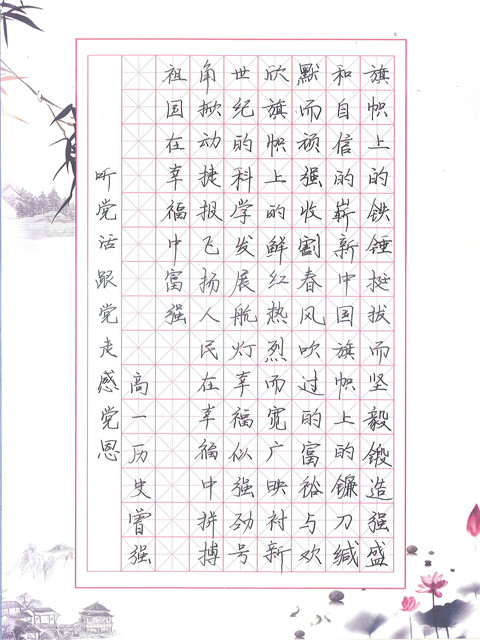 旗帜上的铁锤挺拔而坚毅锻造强盛
和自信的崭新中国旗帜上的镰刀缄
默而顽强收割春风吹过的富裕与欢
欣旗帜上的鲜红热烈而宽广映衬新
世纪的科学发展航灯幸福似强劲号
角掀动捷报飞扬人民在幸福中拼搏
祖国在幸福中富强
高一历史曾强
听党话跟党走感党恩